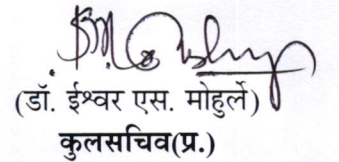 (डॉ. ईश्वर एस. मोहुर्ले)
कुलसचिव(प्र.)